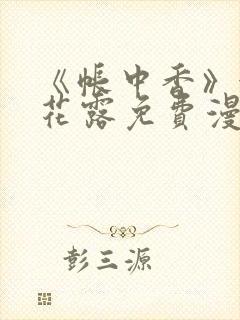 《帐中香》
花露免费漫
彭三源